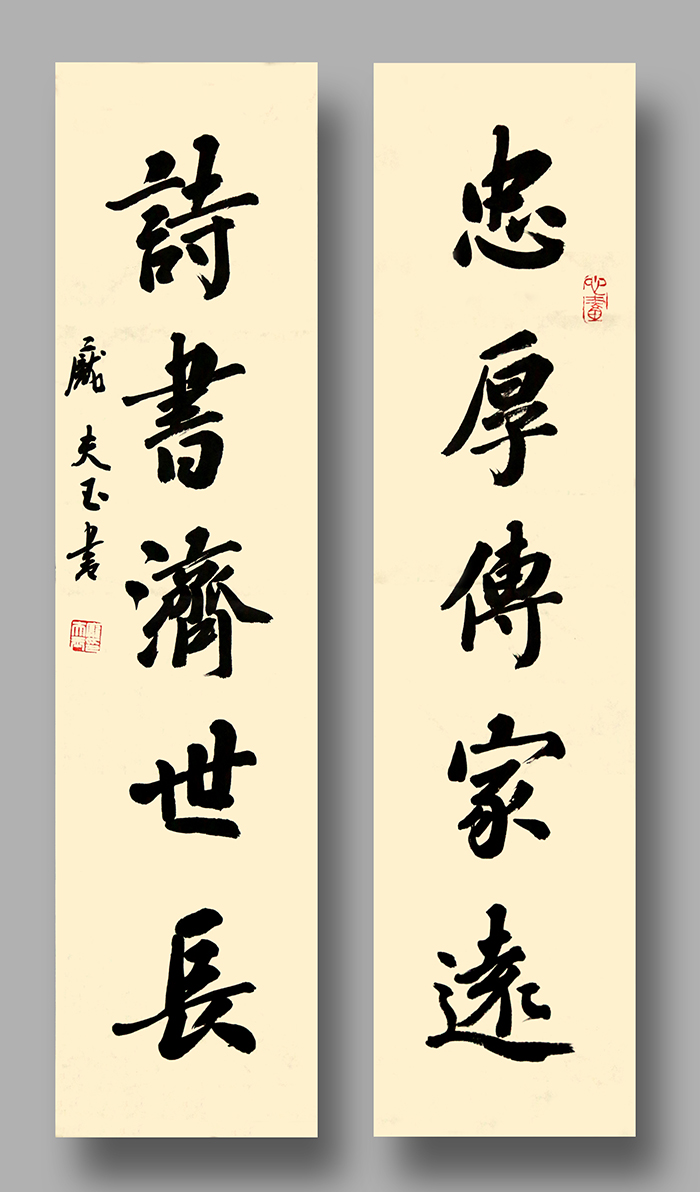 忠厚傳家遠
詩書濟世長
夫玉書